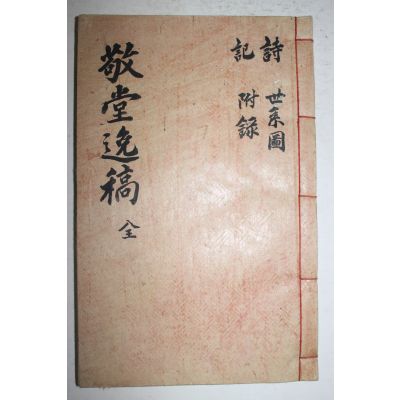 敬堂逸稿 全
詩 世系圖
記 附錄